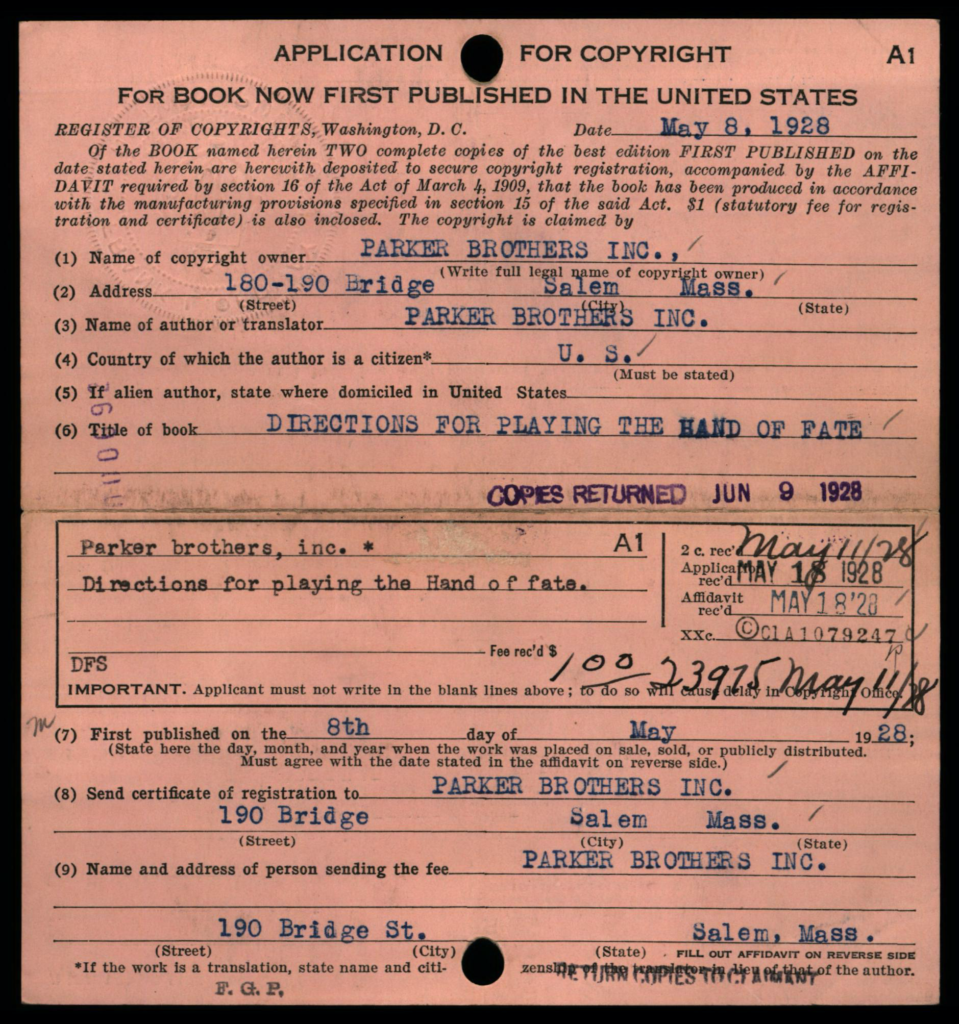 APPLICATION FOR COPYRIGHT A1
FOR BOOK NOW FIRST PUBLISHED IN THE UNITED STATES
REGISTER OF COPYRIGHTS, Washington, D. C. Date May 8, 1928
Of the BOOK named herein TWO complete copies of the best edition FIRST PUBLISHED on the
date stated herein are herewith deposited to secure copyright registration, accompanied by the AFFI-
DAVIT required by section 16 of the Act of March 4, 1909, that the book has been produced in accordance
with the manufacturing provisions specified in section 15 of the said Act. $1 (statutory fee for regis-
tration and certificate) is also inclosed. The copyright is claimed by
(1) Name of copyright owner PARKER BROTHERS INC.,
(Write full legal name of copyright owner)
(2) Address 180-190 Bridge Salem Mass.
(Street) (City) (State)
(3) Name of author or translator PARKER BROTHERS INC.
(4) Country of which the author is a citizen* U. S.
(Must be stated)
(5) If alien author, state where domiciled in United States
(6) Title of book DIRECTIONS FOR PLAYING THE HAND OF FATE
COPIES RETURNED JUN 9 1928
Parker brothers, inc. * A1
2 c. rec' May 11/28
Directions for playing the Hand of fate.
Applica rec'd MAY 18 1928
Affidavit rec'd MAY 18 '28
XXc. © ClA 1079247
DFS Fee rec'd $ 1 00 23975 May 11/28
IMPORTANT. Applicant must not write in the blank lines above; to do so will cause delay in Copyright Office.
(7) First published on the 8th day of May 1928;
(State here the day, month, and year when the work was placed on sale, sold, or publicly distributed.
Must agree with the date stated in the affidavit on reverse side.)
(8) Send certificate of registration to PARKER BROTHERS INC.
190 Bridge Salem Mass.
(Street) (City) (State)
(9) Name and address of person sending the fee PARKER BROTHERS INC.
190 Bridge St. Salem, Mass.
(Street) (City) (State) FILL OUT AFFIDAVIT ON REVERSE SIDE
*If the work is a translation, state name and citizenship of the translator in lieu of that of the author.
RETURN COPIES TO CLAIMANT
F. G. P.